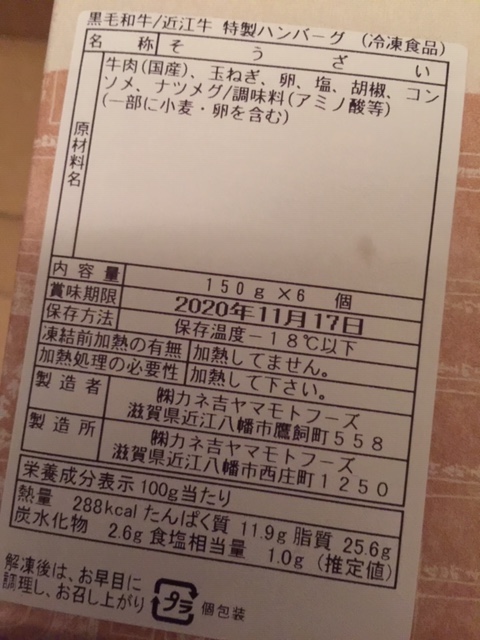 黒毛和牛/近江牛 特製ハンバーグ (冷凍食品)
名 称 そ う ざ い
原材料名 牛肉(国産)、玉ねぎ、卵、塩、胡椒、コン
ソメ、ナツメグ/調味料(アミノ酸等)
(一部に小麦・卵を含む)
内容量 150g×6 個
賞味期限 2020年11月17日
保存方法 保存温度-18℃以下
凍結前加熱の有無 加熱してません。
加熱処理の必要性 加熱して下さい。
製造者 ㈱カネ吉ヤマモトフーズ
滋賀県近江八幡市鷹飼町558
製造所 ㈱カネ吉ヤマモトフーズ
滋賀県近江八幡市西庄町1250
栄養成分表示100g当たり
熱量 288kcal たんぱく質 11.9g 脂質 25.6g
炭水化物 2.6g 食塩相当量 1.0g (推定値)
解凍後は、お早目に
調理し、お召し上がり
プラ 個包装